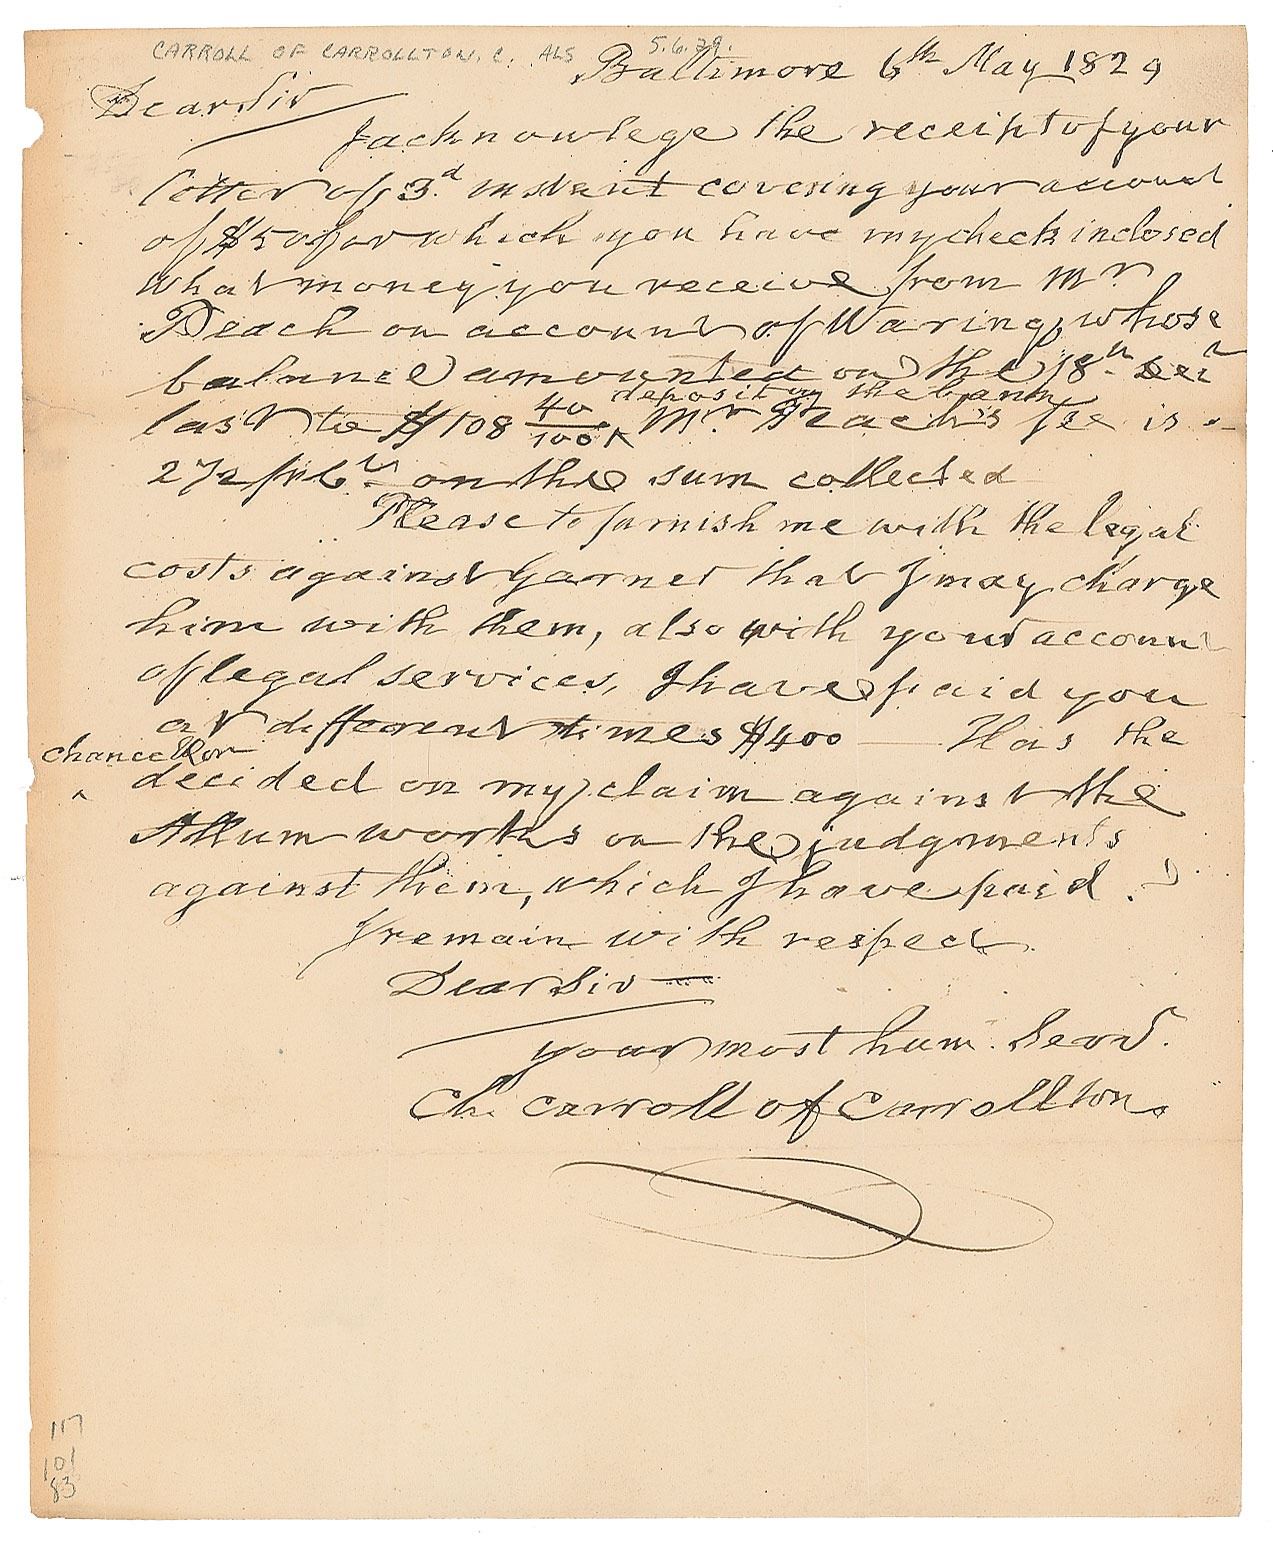 CARROLL OF CARROLLTON, C. ALS 5.6.29.
Baltimore 6th May 1829
Dear Sir
I acknowlege the receipt of your
letter of 3d instant covering your account
of $50 for which you have my check inclosed
What money you receive from Mr
Peach on account of Waring, whose
balance amounted on the 18th Decr
deposit in the bank
last to $108 40/100 ^ Mr Peach's fee is
2 1/2 pr Ct on the sum collected
Please to furnish me with the legal
costs against Garner that I may charge
him with them, also with your account
of legal services, I have paid you
at different times $400 — Has the
chancellor
^ decided on my claim against the
Allum works on the judgments
against them, which I have paid. ?
I remain with respect
Dear Sir —
your most hum. Servt.
Ch. Carroll of Carrollton
117
101
83